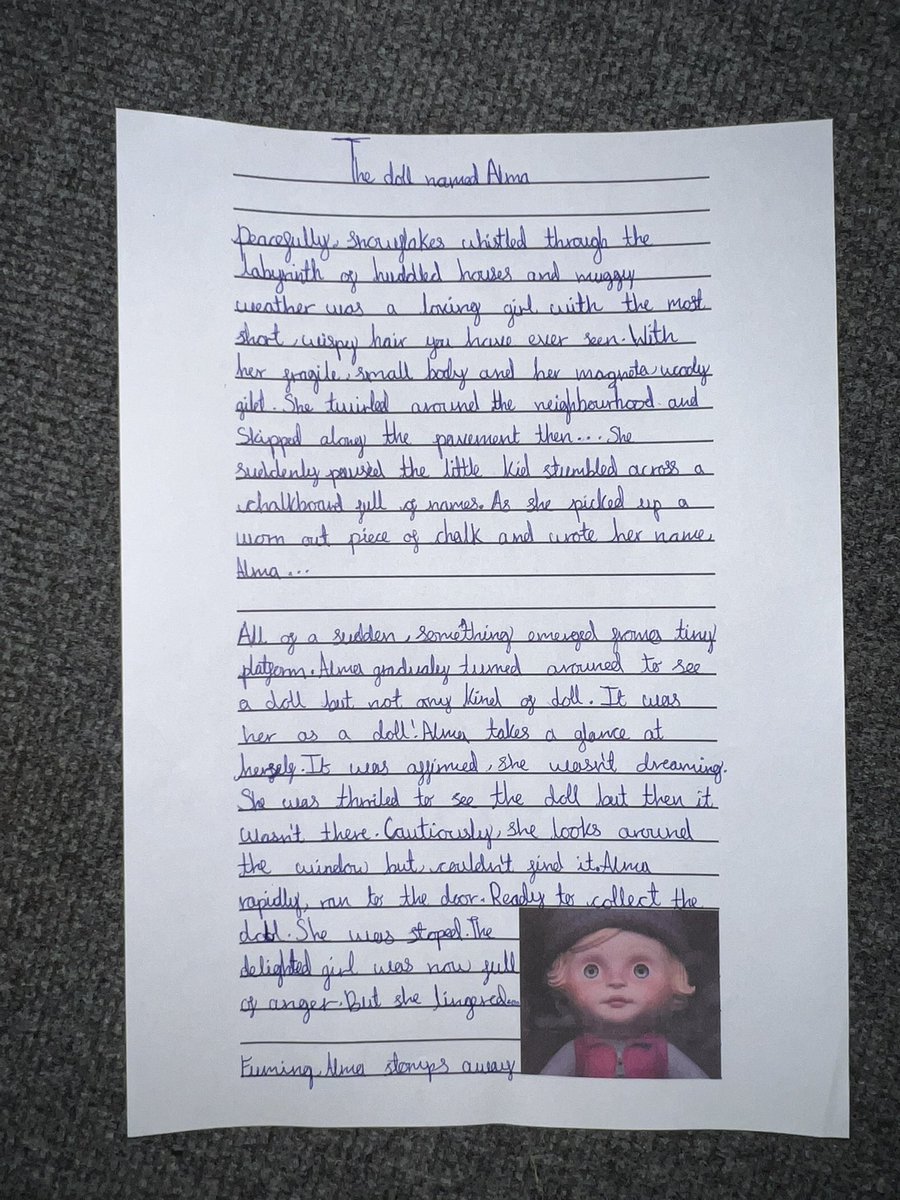 The doll named Alma
Peacefully, snowflakes whistled through the
labyrinth of huddled houses and muggy
weather was a loving girl with the most
short, wispy hair you have ever seen. With
her fragile, small body and her magneta, woody
gilet. She twirled around the neighbourhood and
Skipped along the pavement then.... She
suddenly paused the little kid stumbled across a
chalkboard full of names. As she picked up a
worn out piece of chalk and wrote her name,
Alma ...
All of a sudden, something emerged from a tiny
platform. Alma gradualy turned arouned to see
a doll but not any kind of doll. It was
her as a doll! Alma takes a glance at
herself. It was affirmed, she wasn't dreaming.
She was thriled to see the doll but then it
wasn't there. Cautiously, she looks around
the window but, couldn't find it. Alma
rapidly, ran to the door. Ready to collect the
doll. She was stoped. The
delighted girl was now full
of anger. But she lingered...
Fuming, Alma stomps away